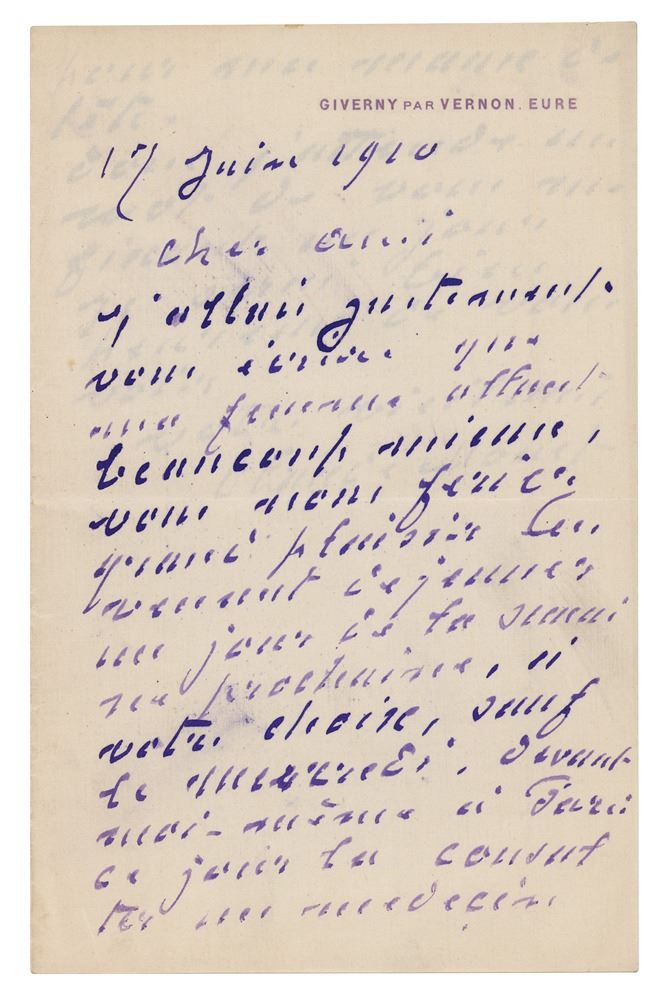 GIVERNY PAR VERNON. EURE
17 Juin 1910
cher ami
j'allais justement
vous écrire que
ma femme allant
beaucoup mieux,
vous nous feriez
grand plaisir en
venant déjeuner
un jour de la semai
ne prochaine, à
votre choix, sauf
le mercredi, devant
moi-même à Paris
ce jour là consul
ter un médecin